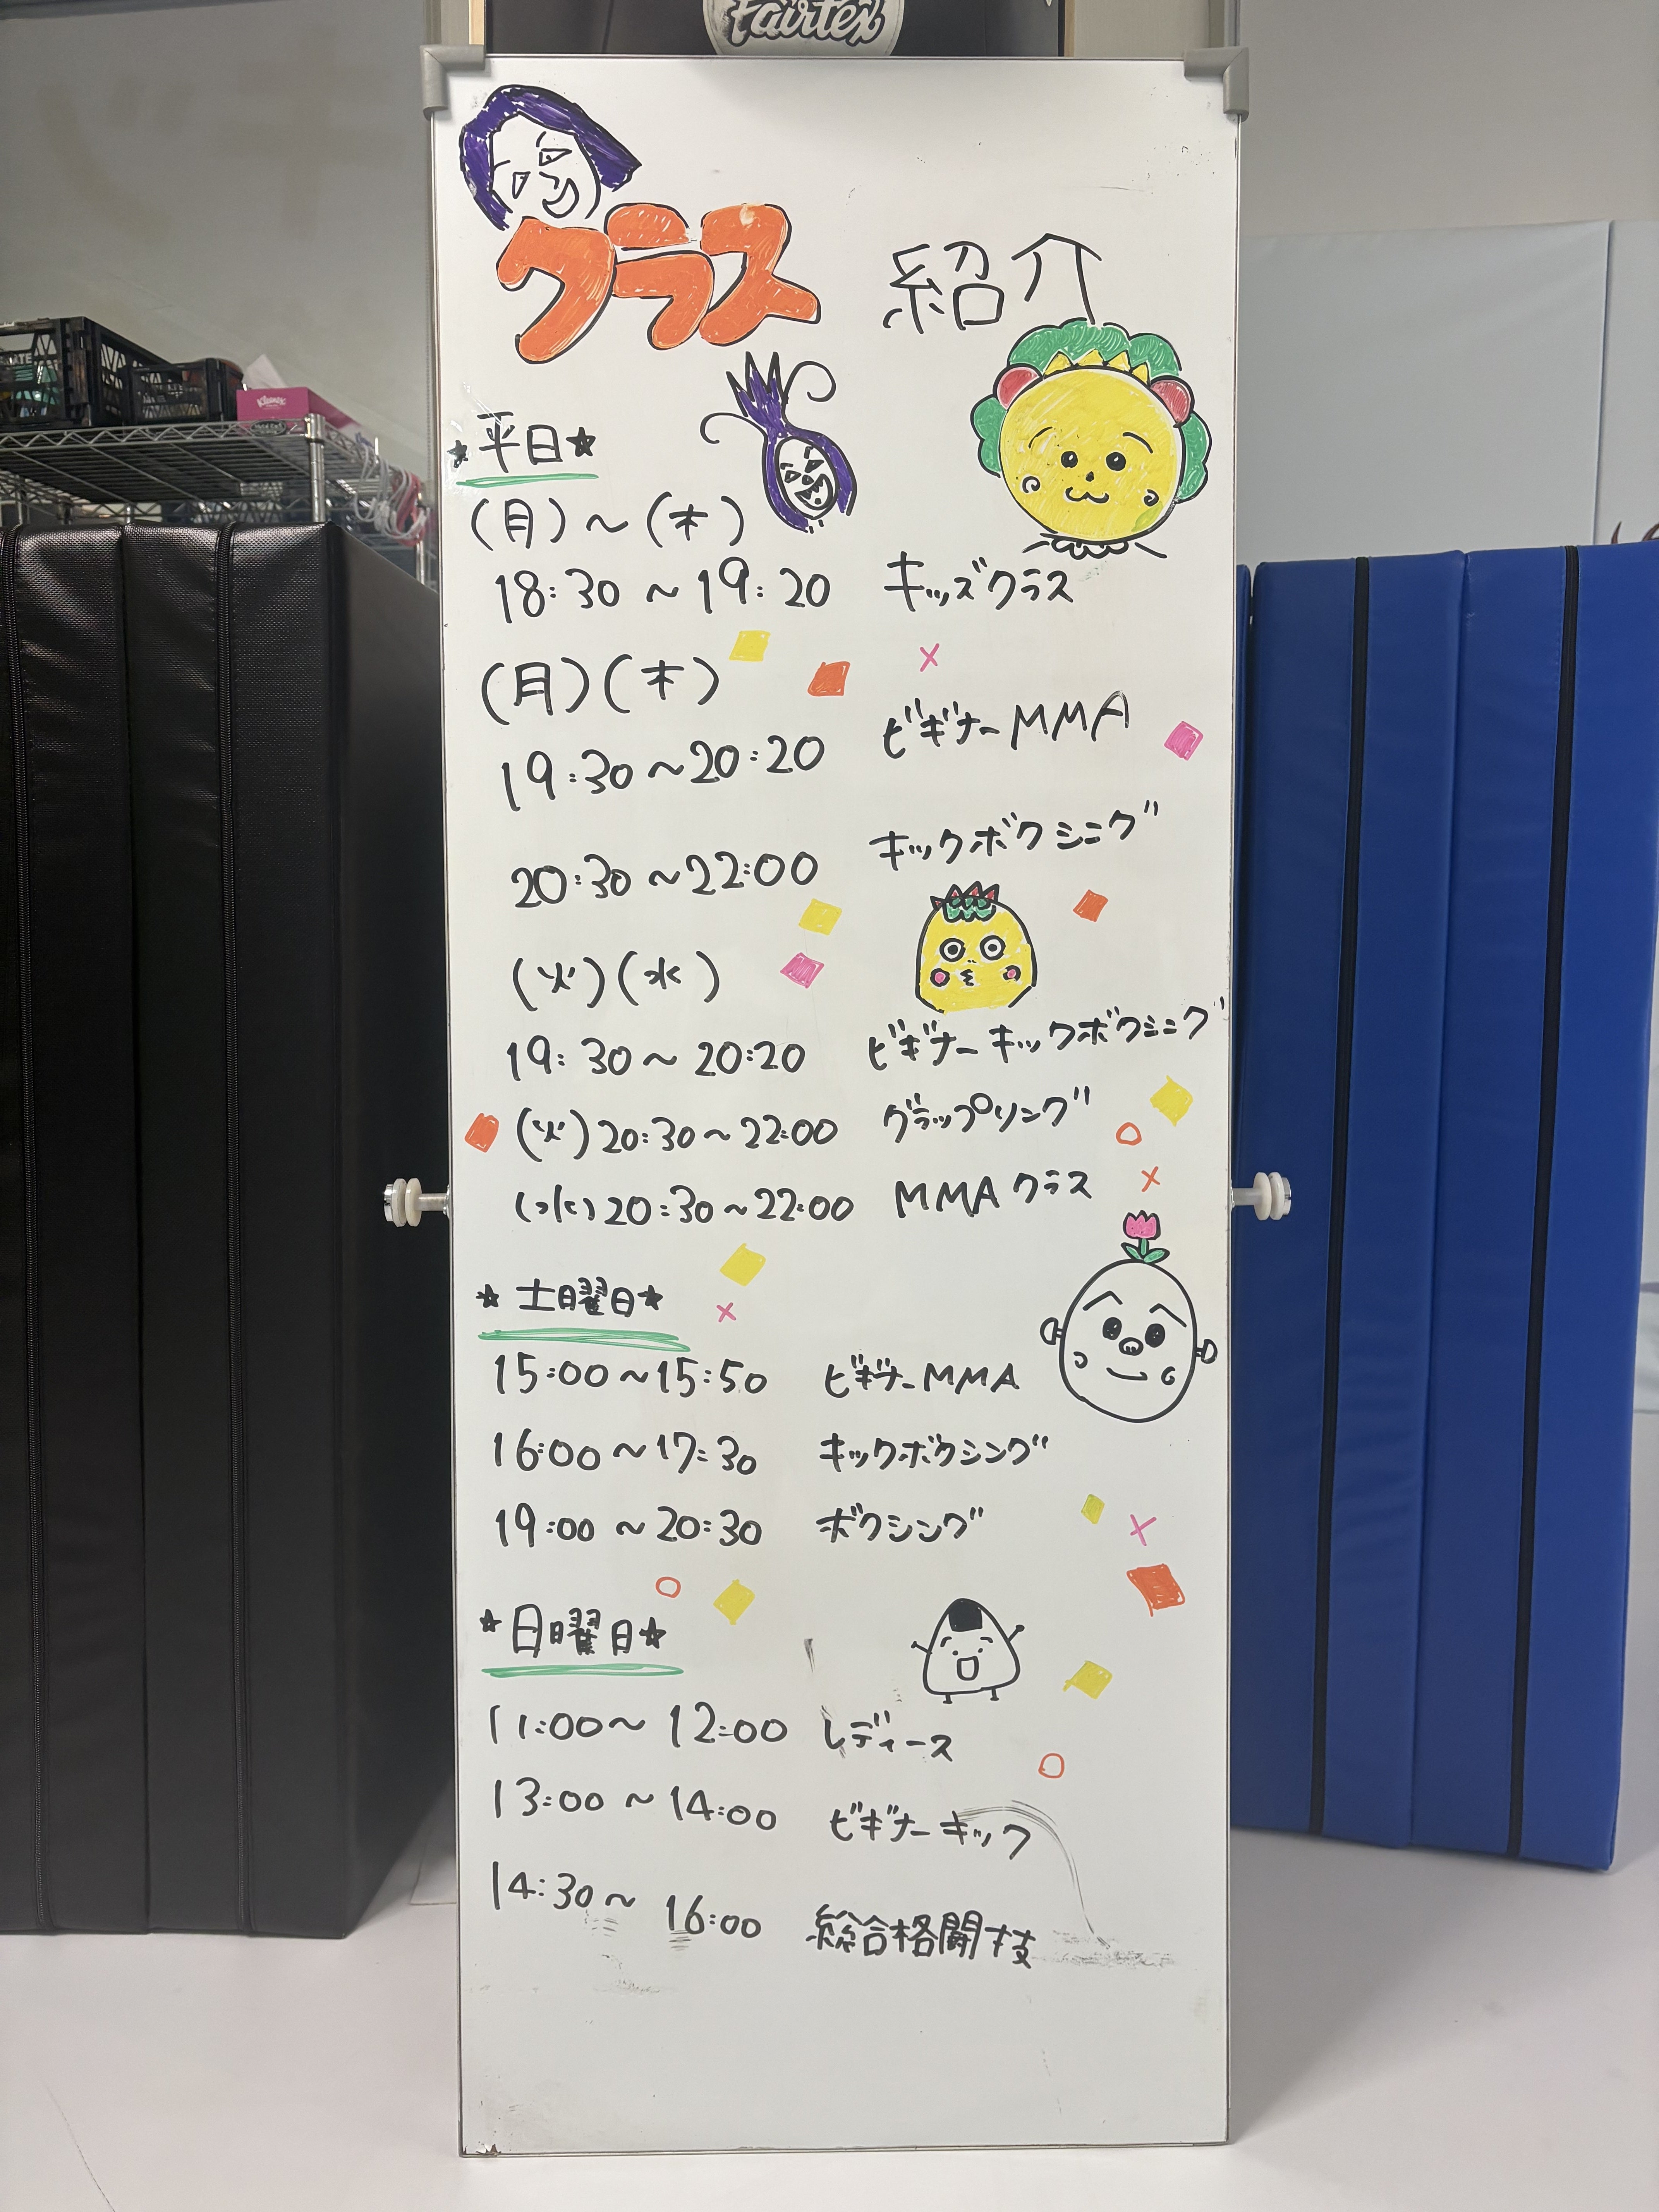 Fairtex
クラス 紹介
★平日★
(月)〜(木)
18:30〜19:20 キッズクラス
(月)(木)
19:30〜20:20 ビギナーMMA
20:30〜22:00 キックボクシング
(火)(水)
19:30〜20:20 ビギナーキックボクシング
(火)20:30〜22:00 グラップリング
(水)20:30〜22:00 MMAクラス
★土曜日★
15:00〜15:50 ビギナーMMA
16:00〜17:30 キックボクシング
19:00〜20:30 ボクシング
★日曜日★
11:00〜12:00 レディース
13:00〜14:00 ビギナーキック
14:30〜16:00 総合格闘技
Kleenex